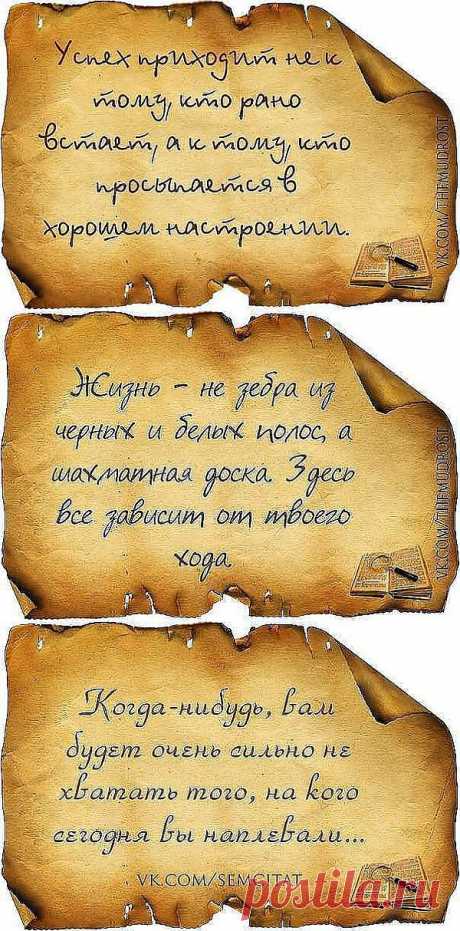 Успех приходит не к
тому, кто рано
встает, а к тому, кто
просыпается в
хорошем настроении.
VK.COM/THEMUDROST
Жизнь - не зебра из
черных и белых полос, а
шахматная доска. Здесь
все зависит от твоего
хода.
VK.COM/THEMUDROST
Когда-нибудь, вам
будет очень сильно не
хватать того, на кого
сегодня вы наплевали...
VK.COM/SEMCITAT
postila.ru